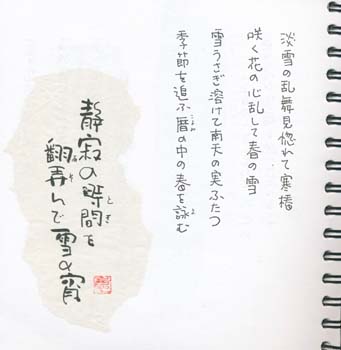 淡雪の乱舞見惚れて寒椿
咲く花の心乱して春の雪
雪うさぎ溶けて南天の実ふたつ
季節を追ふ暦の中の春を詠む
静寂の時間を
とき
翻弄んで雪の宵